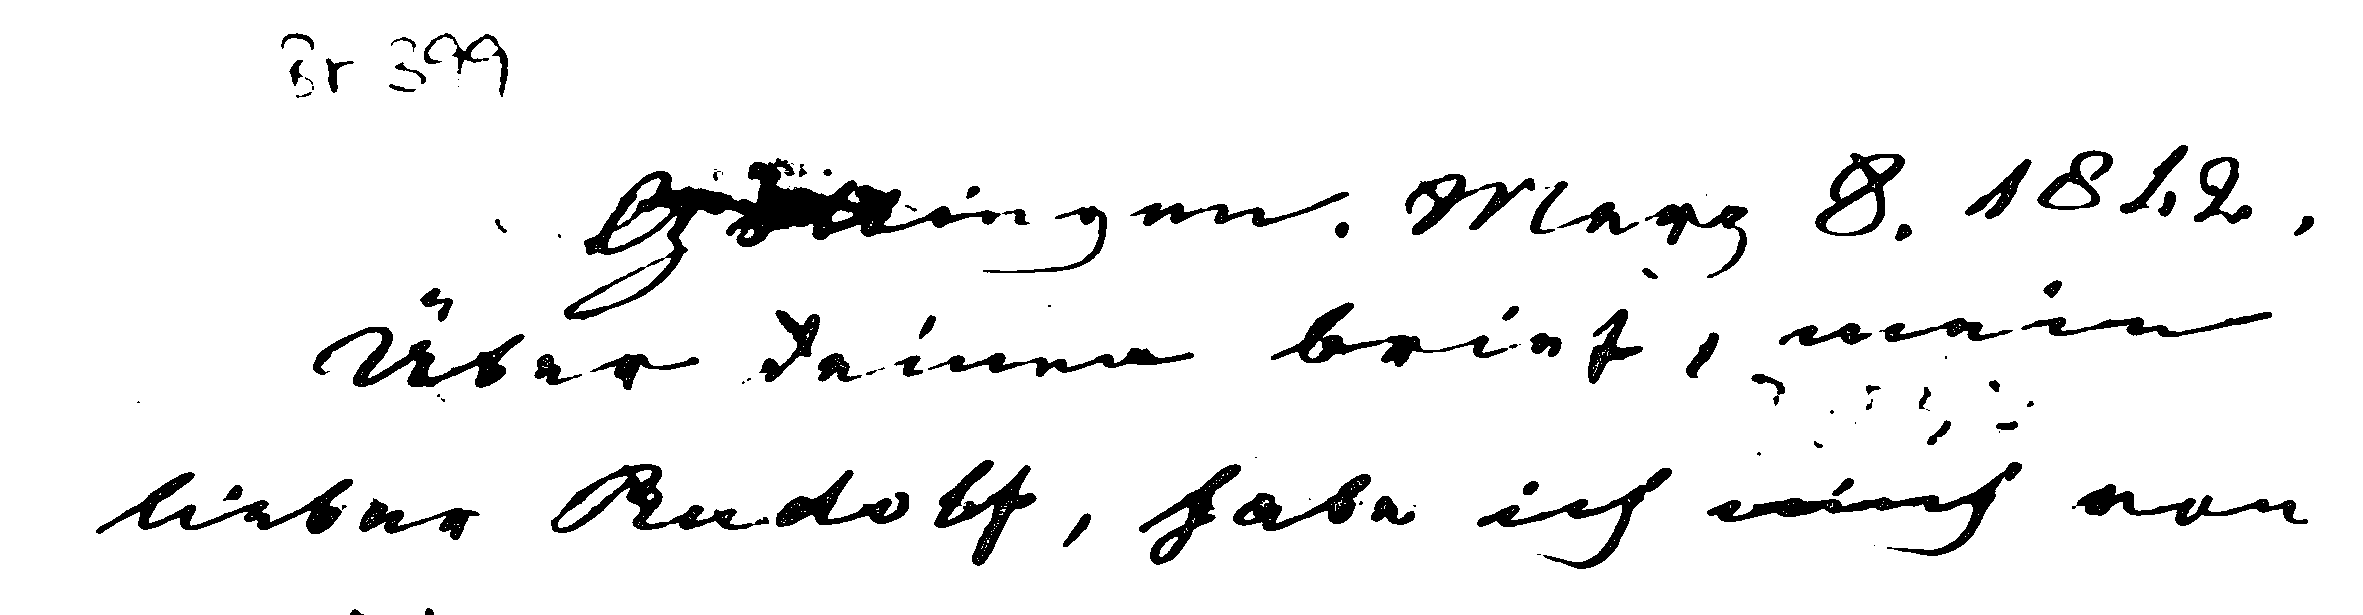 Br 399
Göttingen. Marz 8. 1842.
Über deinen brief, mein
lieber Rudolf, habe ich mich von